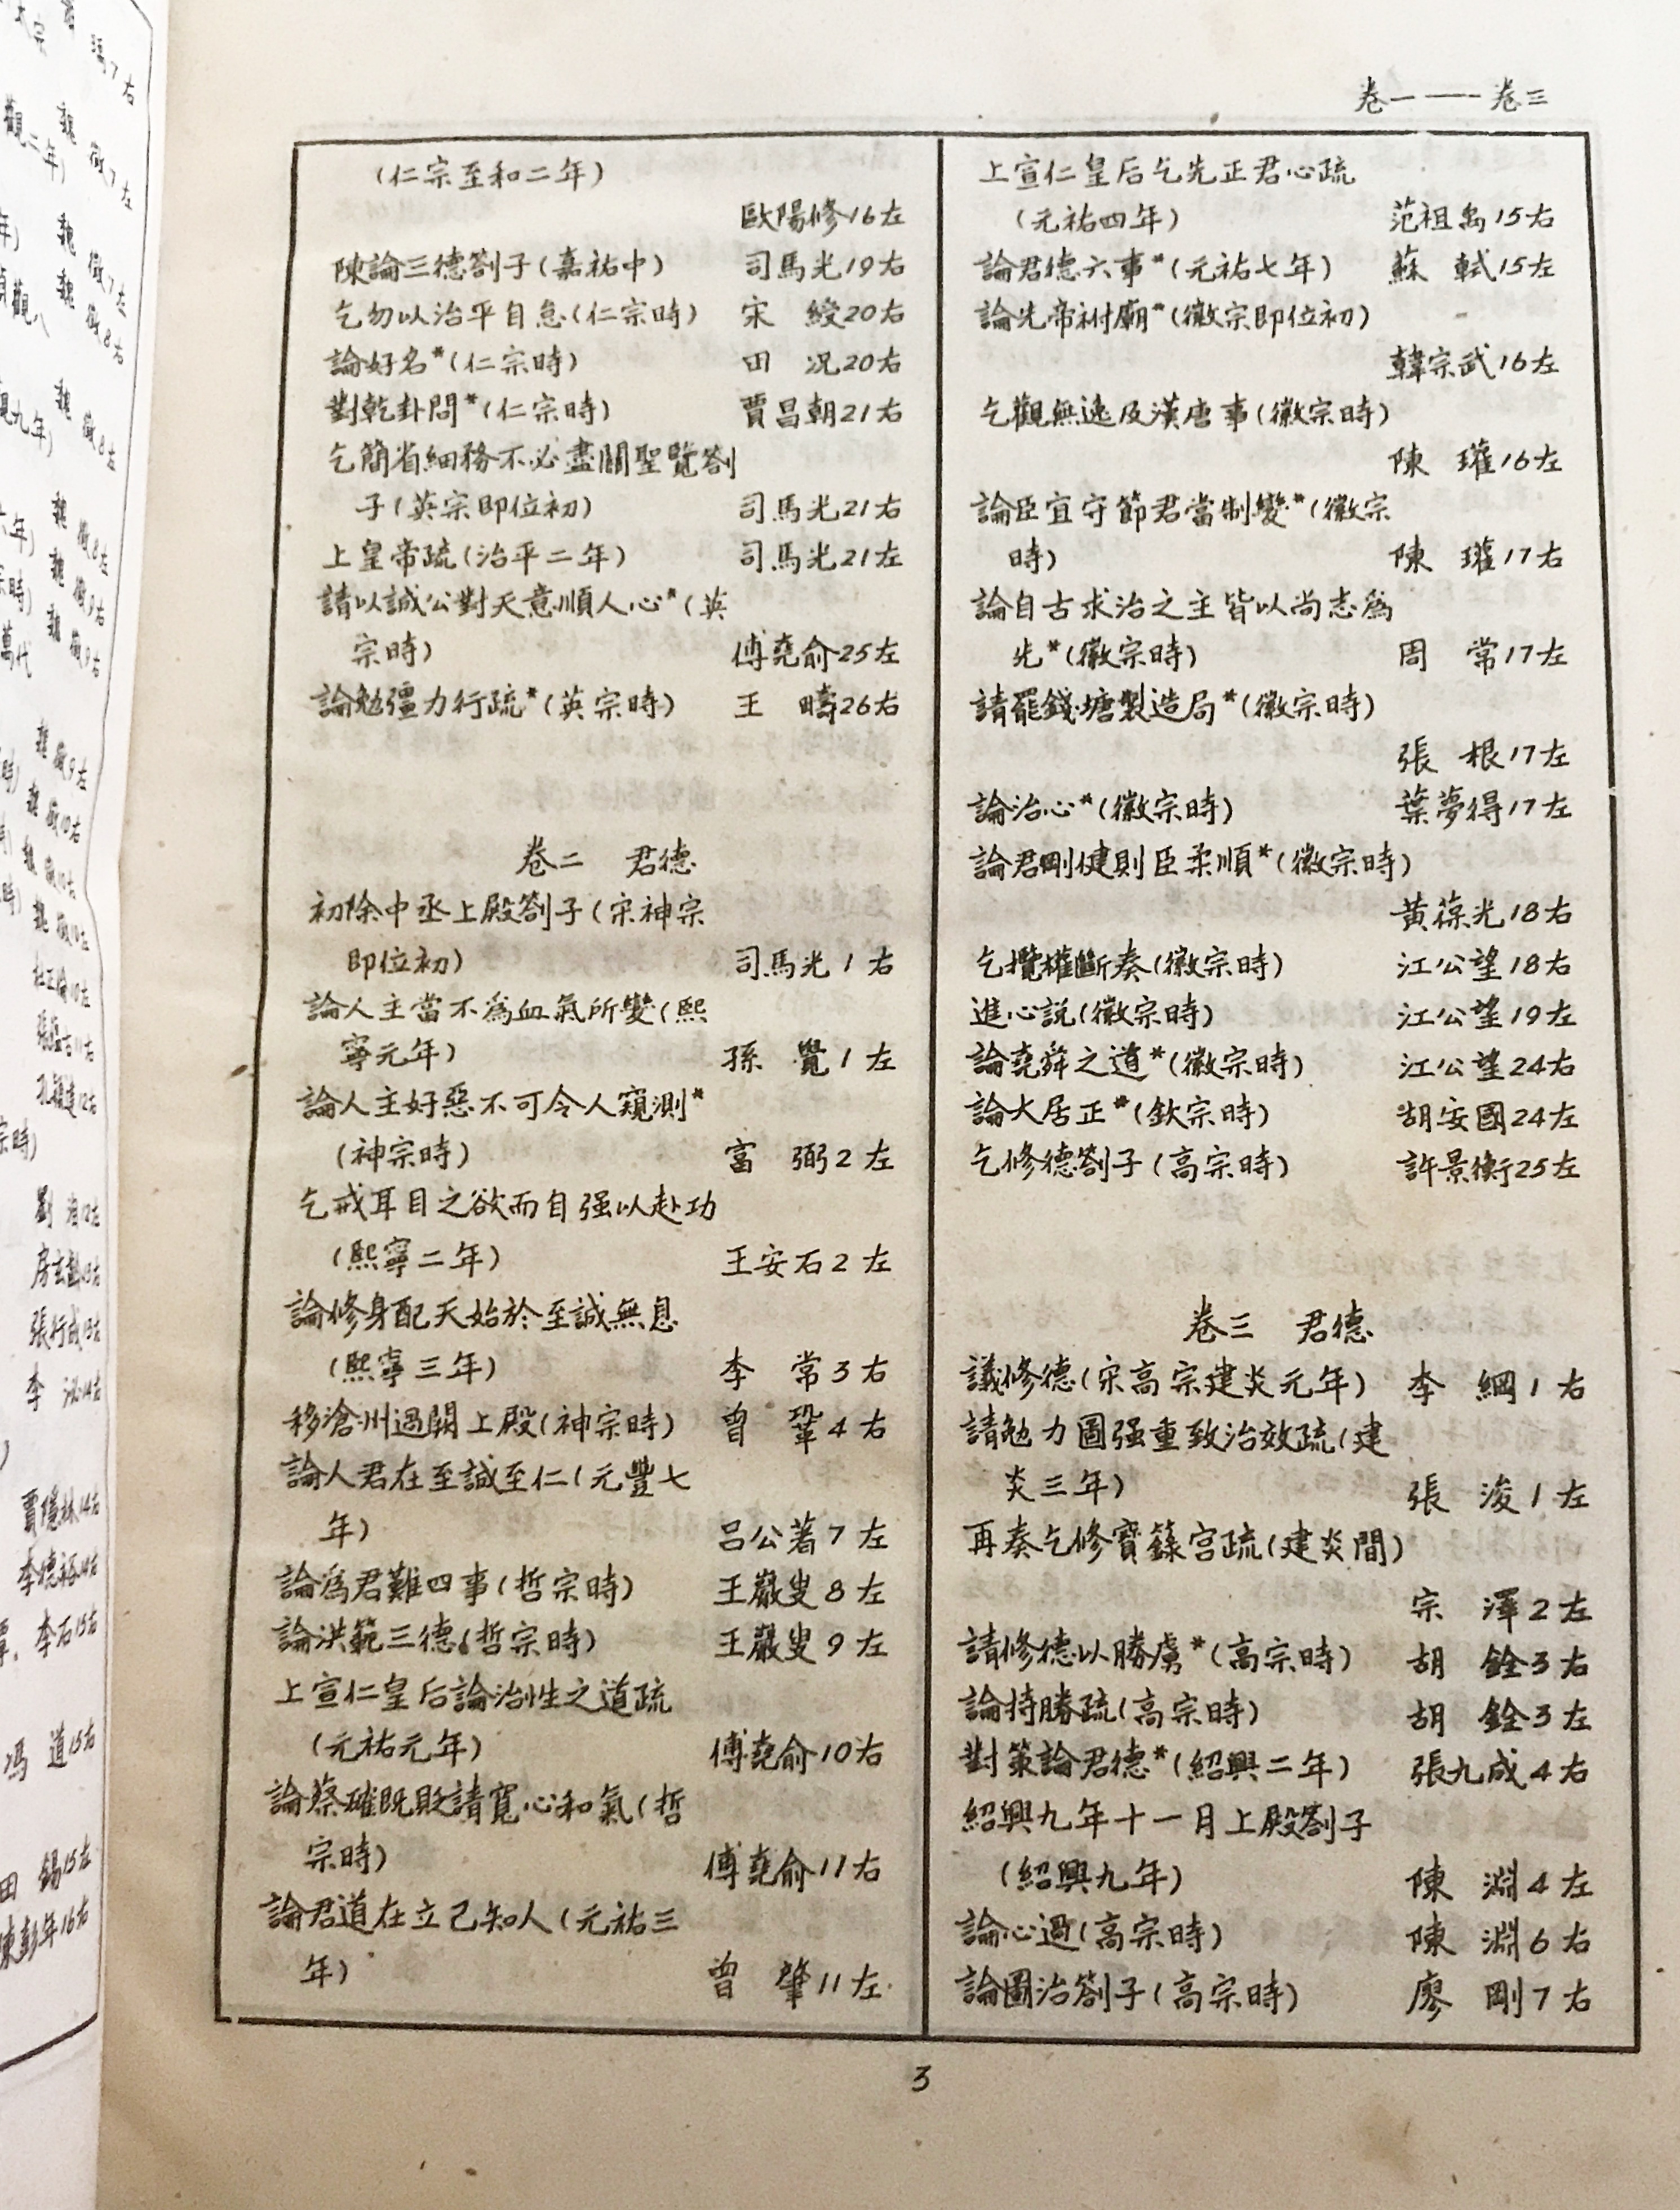 卷一——卷三
(仁宗至和二年)
歐陽修16左
陳論三德劄子(嘉祐中) 司馬光19右
乞勿以治平自怠(仁宗時) 宋 綬20右
論好名*(仁宗時) 田 况20右
對乾卦問*(仁宗時) 賈昌朝21右
乞簡省細務不必盡關聖覽劄
子(英宗即位初) 司馬光21右
上皇帝疏(治平二年) 司馬光21左
請以誠公對天意順人心*(英
宗時) 傅堯俞25左
論勉彊力行疏*(英宗時) 王 疇26右
卷二 君德
初除中丞上殿劄子(宋神宗
即位初) 司馬光1右
論人主當不爲血氣所變(熙
寧元年) 孫 覺1左
論人主好惡不可令人窺測*
(神宗時) 富 弼2左
乞戒耳目之欲而自强以赴功
(熙寧二年) 王安石2左
論修身配天始於至誠無息
(熙寧三年) 李 常3右
移滄州過闕上殿(神宗時) 曾 鞏4右
論人君在至誠至仁(元豐七
年) 吕公著7左
論爲君難四事(哲宗時) 王巖叟8左
論洪範三德(哲宗時) 王巖叟9左
上宣仁皇后論治性之道疏
(元祐元年) 傅堯俞10右
論蔡確既敗請寬心和氣(哲
宗時) 傅堯俞11右
論君道在立己知人(元祐三
年) 曾 肇11左
上宣仁皇后乞先正君心疏
(元祐四年) 范祖禹15右
論君德六事*(元祐七年) 蘇 軾15左
論先帝祔廟*(徽宗即位初)
韓宗武16左
乞觀無逸及漢唐事(徽宗時)
陳 瓘16左
論臣宜守節君當制變*(徽宗
時) 陳 瓘17右
論自古求治之主皆以尚志爲
先*(徽宗時) 周 常17左
請罷錢塘製造局*(徽宗時)
張 根17左
論治心*(徽宗時) 葉夢得17左
論君剛健則臣柔順*(徽宗時)
黄葆光18右
乞攬權斷奏(徽宗時) 江公望18右
進心説(徽宗時) 江公望19左
論堯舜之道*(徽宗時) 江公望24右
論大居正*(欽宗時) 胡安國24左
乞修德劄子(高宗時) 許景衡25左
卷三 君德
議修德(宋高宗建炎元年) 李 綱1右
請勉力圖强重致治效疏(建
炎三年) 張 浚1左
再奏乞修寶籙宫疏(建炎間)
宗 澤2左
請修德以勝虜*(高宗時) 胡 銓3右
論持勝疏(高宗時) 胡 銓3左
對策論君德*(紹興二年) 張九成4右
紹興九年十一月上殿劄子
(紹興九年) 陳 淵4左
論心過(高宗時) 陳 淵6右
論圖治劄子(高宗時) 廖 剛7右
3